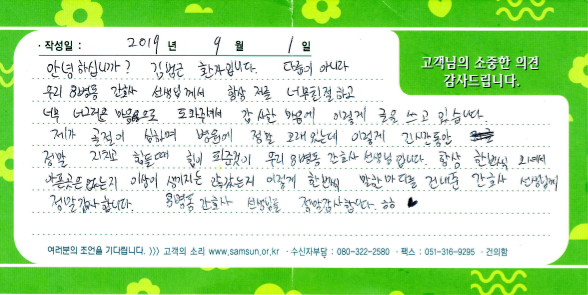 · 작성일 : 2019 년 9 월 1 일
고객님의 소중한 의견
감사드립니다.
안녕하십니까? 김범근 환자입니다. 다름이 아니라
우리 8병동 간호사 선생님께서 항상 저를 너무친절하고
너무 너그러운 마음으로 도와주셔서 감사한 마음에 이렇게 글을 쓰고 있습니다.
제가 골절이 심하여 병원에 정말 오래있는데 이렇게 긴시간동안
정말 지치고 힘들때 힘이 되준것이 우리 8병동 간호사 선생님입니다. 항상 한번씩 오셔서
아픈곳은 없는지 이상이 생기지는 않았는지 이렇게 한번씩 말한마디를 건내준 간호사 선생님께
정말감사합니다. 8병동 간호사 선생님들 정말감사합니다. ㅎㅎ
여러분의 조언을 기다립니다. 》》》 고객의 소리 www.samsun.or.kr · 수신자부담 : 080-322-2580 · 팩스 : 051-316-9295 · 건의함